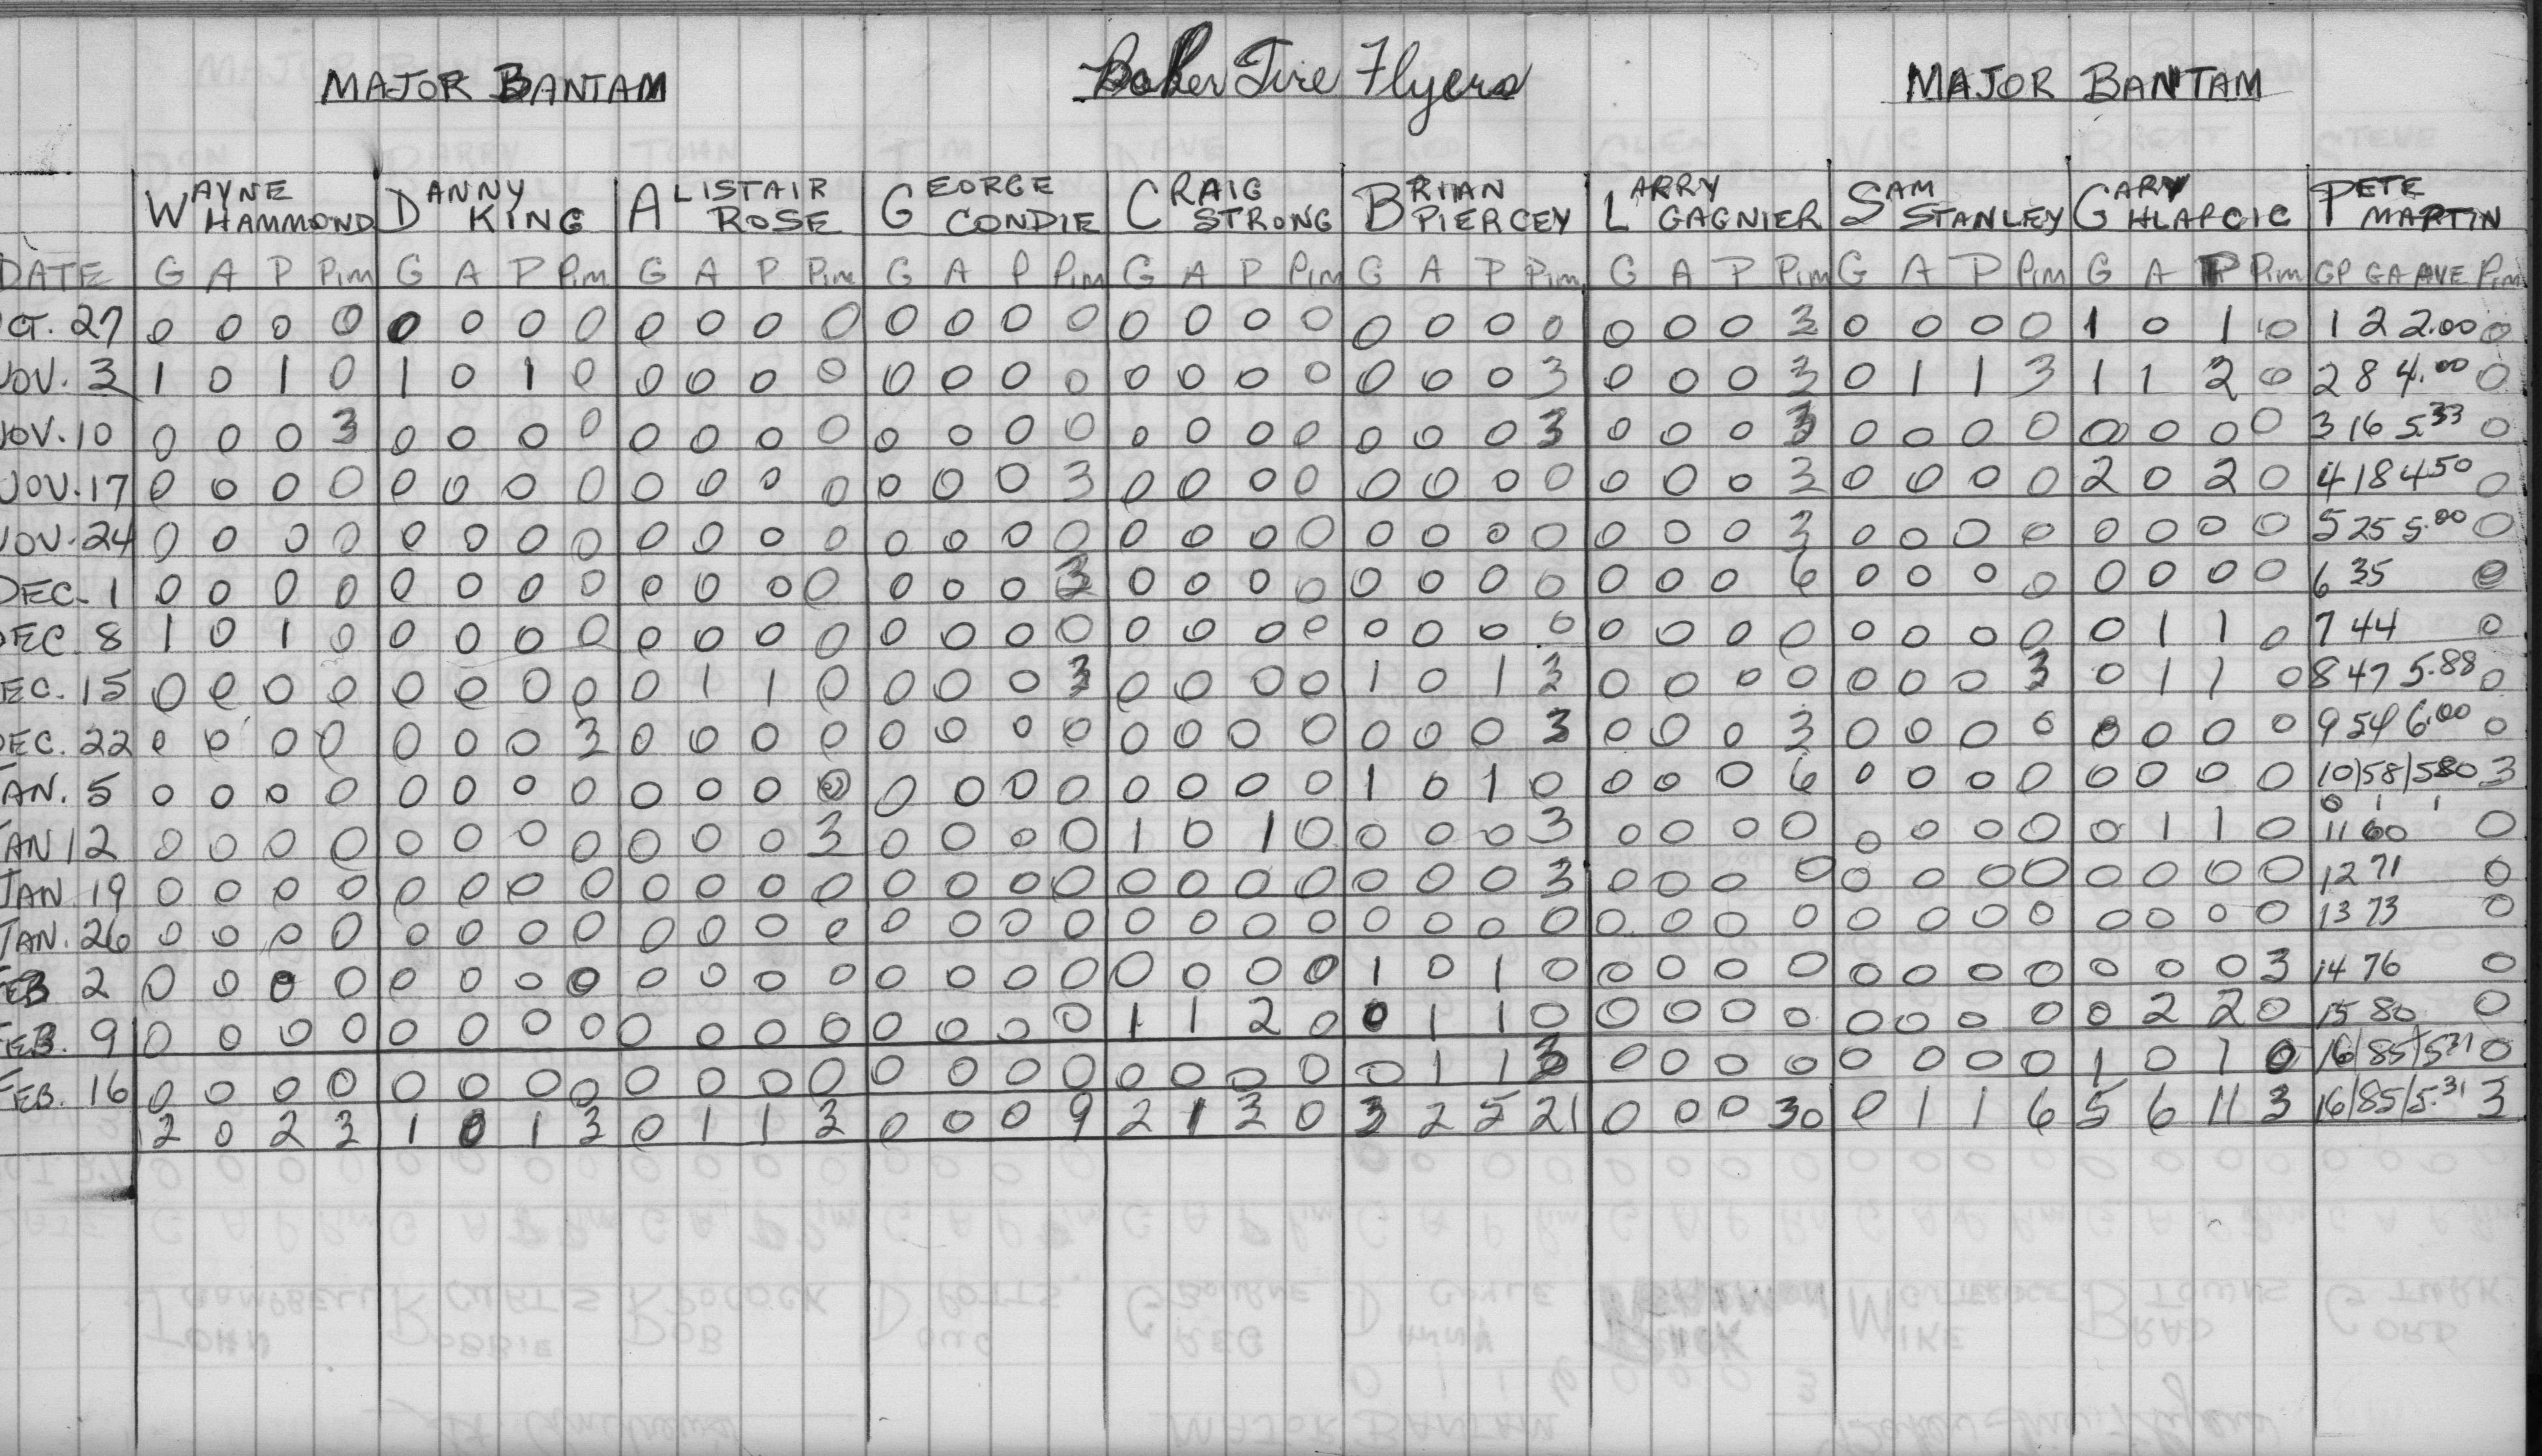 MAJOR BANTAM Baker Tire Flyers MAJOR BANTAM
WAYNE HAMMOND DANNY KING ALISTAIR ROSE GEORGE CONDIE CRAIG STRONG BRIAN PIERCEY LARRY GAGNIER SAM STANLEY GARY HLAPCIC PETE MARTIN
DATE G A P Pim G A P Pim G A P Pim G A P Pim G A P Pim G A P Pim G A P Pim G A P Pim G A P Pim GP GA AVE Pim
CT. 27 0 0 0 0 0 0 0 0 0 0 0 0 0 0 0 0 0 0 0 0 0 0 0 0 0 0 0 3 0 0 0 0 1 0 1 0 1 2 2.00 0
NOV. 3 1 0 1 0 1 0 1 0 0 0 0 0 0 0 0 0 0 0 0 0 0 0 0 3 0 0 0 3 0 1 1 3 1 1 2 0 2 8 4.00 0
NOV. 10 0 0 0 3 0 0 0 0 0 0 0 0 0 0 0 0 0 0 0 0 0 0 0 3 0 0 0 3 0 0 0 0 0 0 0 0 3 16 5.33 0
NOV. 17 0 0 0 0 0 0 0 0 0 0 0 0 0 0 0 3 0 0 0 0 0 0 0 0 0 0 0 3 0 0 0 0 2 0 2 0 4 18 4.50 0
NOV. 24 0 0 0 0 0 0 0 0 0 0 0 0 0 0 0 0 0 0 0 0 0 0 0 0 0 0 0 3 0 0 0 0 0 0 0 0 5 25 5.00 0
DEC. 1 0 0 0 0 0 0 0 0 0 0 0 0 0 0 0 3 0 0 0 0 0 0 0 0 0 0 0 6 0 0 0 0 0 0 0 0 6 35 0
DEC 8 1 0 1 0 0 0 0 0 0 0 0 0 0 0 0 0 0 0 0 0 0 0 0 0 0 0 0 0 0 0 0 0 0 1 1 0 7 44 0
EC. 15 0 0 0 0 0 0 0 0 0 1 1 0 0 0 0 3 0 0 0 0 1 0 1 3 0 0 0 0 0 0 0 3 0 1 1 0 8 47 5.88 0
EC. 22 0 0 0 0 0 0 0 3 0 0 0 0 0 0 0 0 0 0 0 0 0 0 0 3 0 0 0 3 0 0 0 0 0 0 0 0 9 54 6.00 0
AN. 5 0 0 0 0 0 0 0 0 0 0 0 0 0 0 0 0 0 0 0 0 1 0 1 0 0 0 0 6 0 0 0 0 0 0 0 0 10/58/5.80 3
0 1 1
AN 12 0 0 0 0 0 0 0 0 0 0 0 3 0 0 0 0 1 0 1 0 0 0 0 3 0 0 0 0 0 0 0 0 0 1 1 0 11 60 0
JAN 19 0 0 0 0 0 0 0 0 0 0 0 0 0 0 0 0 0 0 0 0 0 0 0 3 0 0 0 0 0 0 0 0 0 0 0 0 12 71 0
JAN. 26 0 0 0 0 0 0 0 0 0 0 0 0 0 0 0 0 0 0 0 0 0 0 0 0 0 0 0 0 0 0 0 0 0 0 0 0 13 73 0
EB 2 0 0 0 0 0 0 0 0 0 0 0 0 0 0 0 0 0 0 0 0 1 0 1 0 0 0 0 0 0 0 0 0 0 0 0 3 14 76 0
FEB. 9 0 0 0 0 0 0 0 0 0 0 0 0 0 0 0 0 1 1 2 0 0 1 1 0 0 0 0 0 0 0 0 0 0 2 2 0 15 80 0
FEB. 16 0 0 0 0 0 0 0 0 0 0 0 0 0 0 0 0 0 0 0 0 0 1 1 3 0 0 0 0 0 0 0 0 1 0 1 0 16/85/5.31 0
2 0 2 3 1 0 1 3 0 1 1 3 0 0 0 9 2 1 3 0 3 2 5 21 0 0 0 30 0 1 1 6 5 6 11 3 16/85/5.31 3